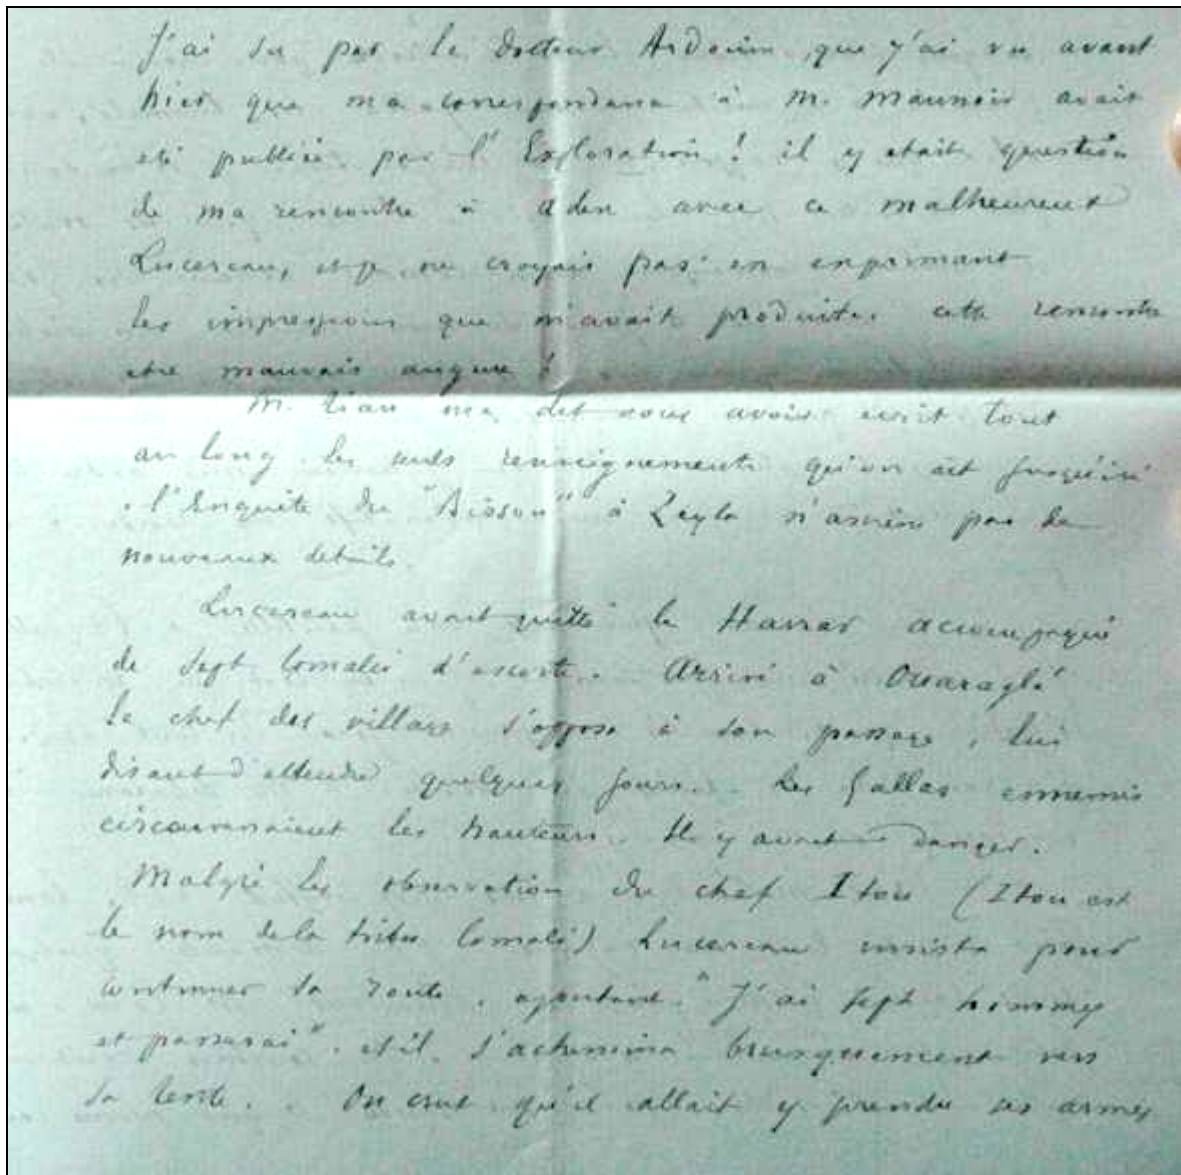 J'ai su par le docteur Ardouin, que j'ai vu avant
hier que ma correspondance à M. Maunoir avait
été publiée par l'Exploration ! il y etait question
de ma rencontre à Aden avec ce malheureux
Lucereau, et je ne croyais pas en exprimant
les impressions que m'avait produites cette rencontre
etre mauvais augure !
M. Tian m'a dit vous avoir ecrit tout
au long les seuls renseignements qu'on ait jusqu'ici
. l'Enquête du "Bisson" à Zeyla n'amène pas de
nouveaux details.
Lucereau avait quitté le Harrar accompagné
de sept Comalis d'escorte. Arrivé à Ouaraglé
le chef des village s'oppose à son passage, lui
disant d'attendre quelques jours. Les Gallas ennemis
circonvenaient les hauteurs. Il y avait danger.
Malgré les observation du chef Itou (Itou est
le nom de la tribu Comali) Lucereau insista pour
continuer sa route, ajoutant "J'ai sept hommes
et passerai". et il s'achemina brusquement vers
sa tente. On crut qu'il allait y prendre ses armes